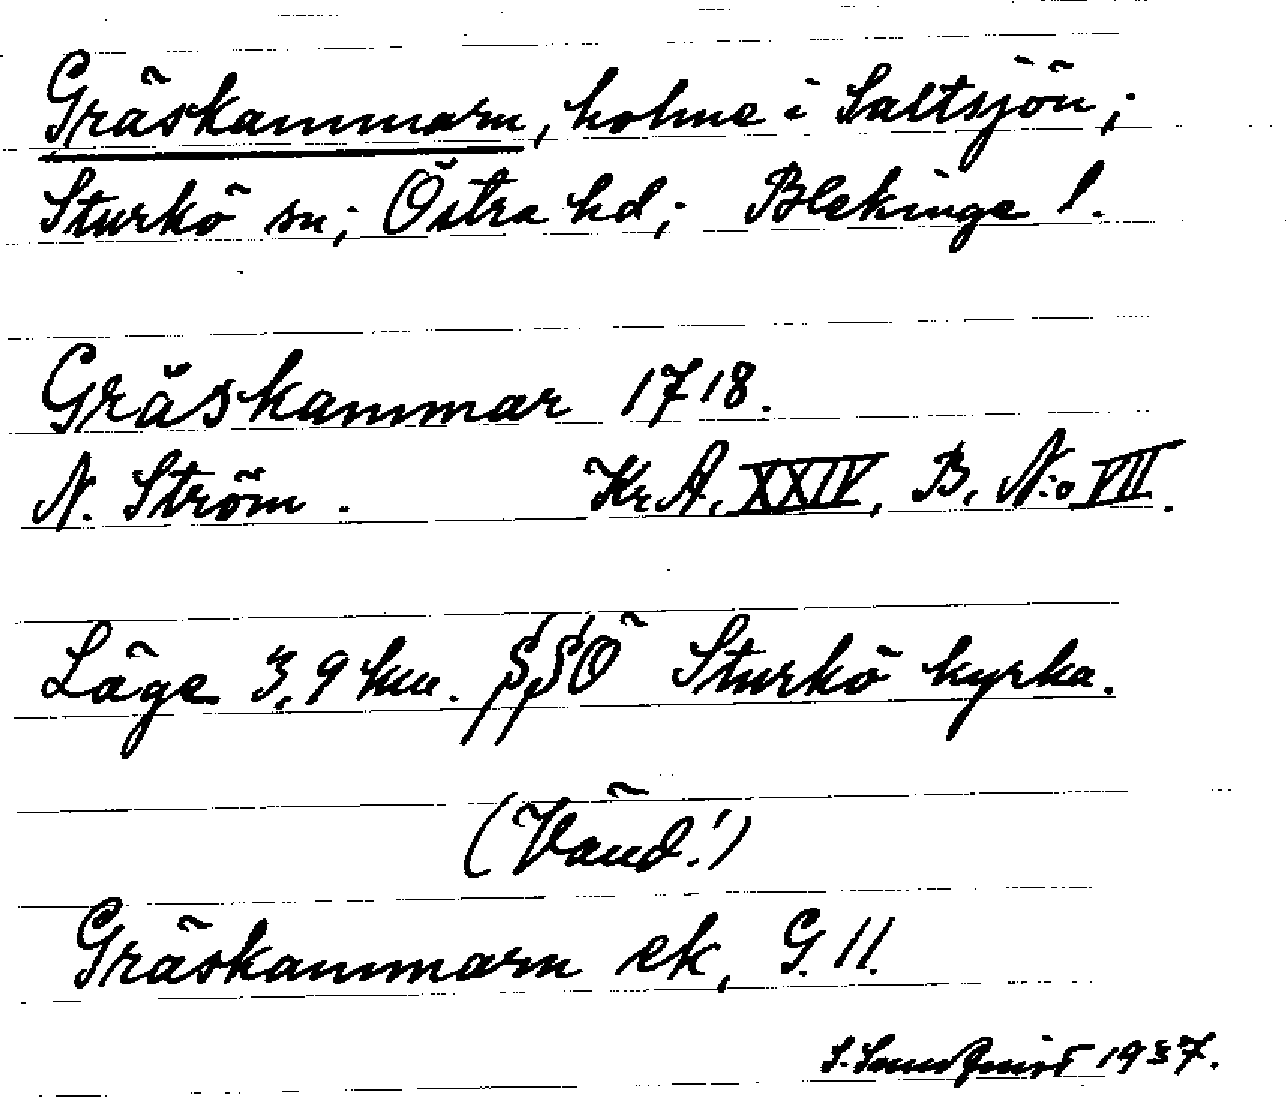 Gräskammarn, holme i Saltsjön;
Sturkö sn; Östra hd; Blekinge l.
Gräskammar 1718.
N. Ström. Kr.A. XXIV, B, N:o VII.
Läge 3,9 km. SSÖ Sturkö kyrka.
(Vänd!)
Gräskammarn ek, G. 11.
S. Sundquist 1937.